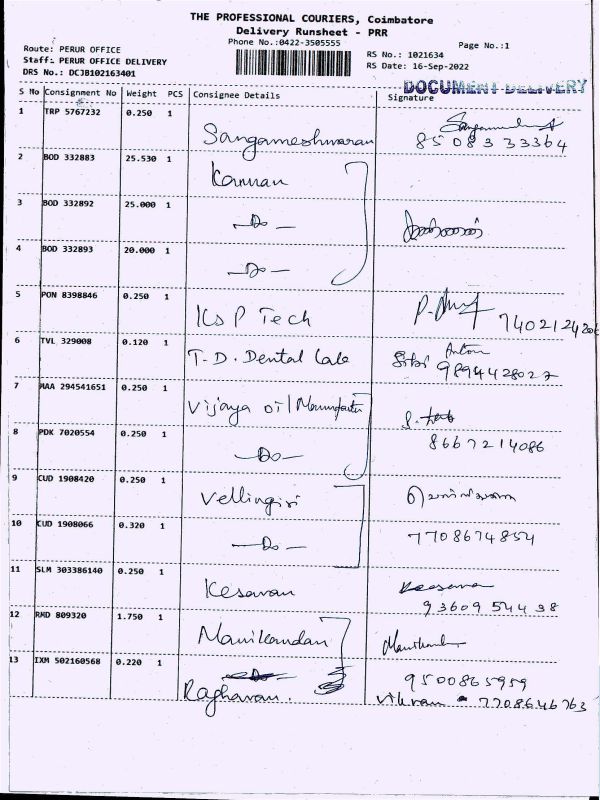 THE PROFESSIONAL COURIERS, Coimbatore
Delivery Runsheet - PRR
Phone No.:0422-3505555
Page No.:1
Route: PERUR OFFICE
RS No.: 1021634
Staff: PERUR OFFICE DELIVERY
RS Date: 16-Sep-2022
DRS No.: DCJB102163401
DOCUMENT DELIVERY
S No Consignment No Weight PCS Consignee Details Signature
1 TRP 5767232 0.250 1 Sangameshwaran
85083 33364
2 BOD 332883 25.530 1 Kannan
3 BOD 332892 25.000 1 -Do-
4 BOD 332893 20.000 1 -Do-
5 PON 8398846 0.250 1 KSP Tech
6 TVL 329008 0.120 1 T.D. Dental Labe
Anton
9894428027
7 MAA 294541651 0.250 1 Vijaya oil
8 PDK 7020554 0.250 1 -Do- 8667214086
9 CUD 1908420 0.250 1 Vellingiri
10 CUD 1908066 0.320 1 -Do- 7708674854
11 SLM 303386140 0.250 1 Kesavan
93609 54438
12 RMD 809320 1.750 1 Manikandan
13 IXM 502160568 0.220 1 Raghavan. 9500865959
Vikram 7708646763